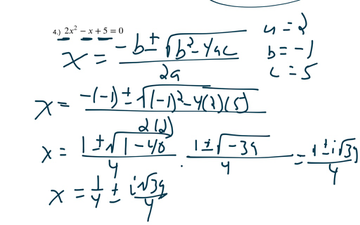 4.) 2x² − x + 5 = 0
x = −b ± √(b² − 4ac) / 2a
a = 2
b = −1
c = 5
x = −(−1) ± √((−1)² − 4(2)(5)) / 2(2)
x = 1 ± √(1 − 40) / 4 . 1 ± √−39 / 4 = 1 ± i√39 / 4
x = 1/4 ± i√39 / 4